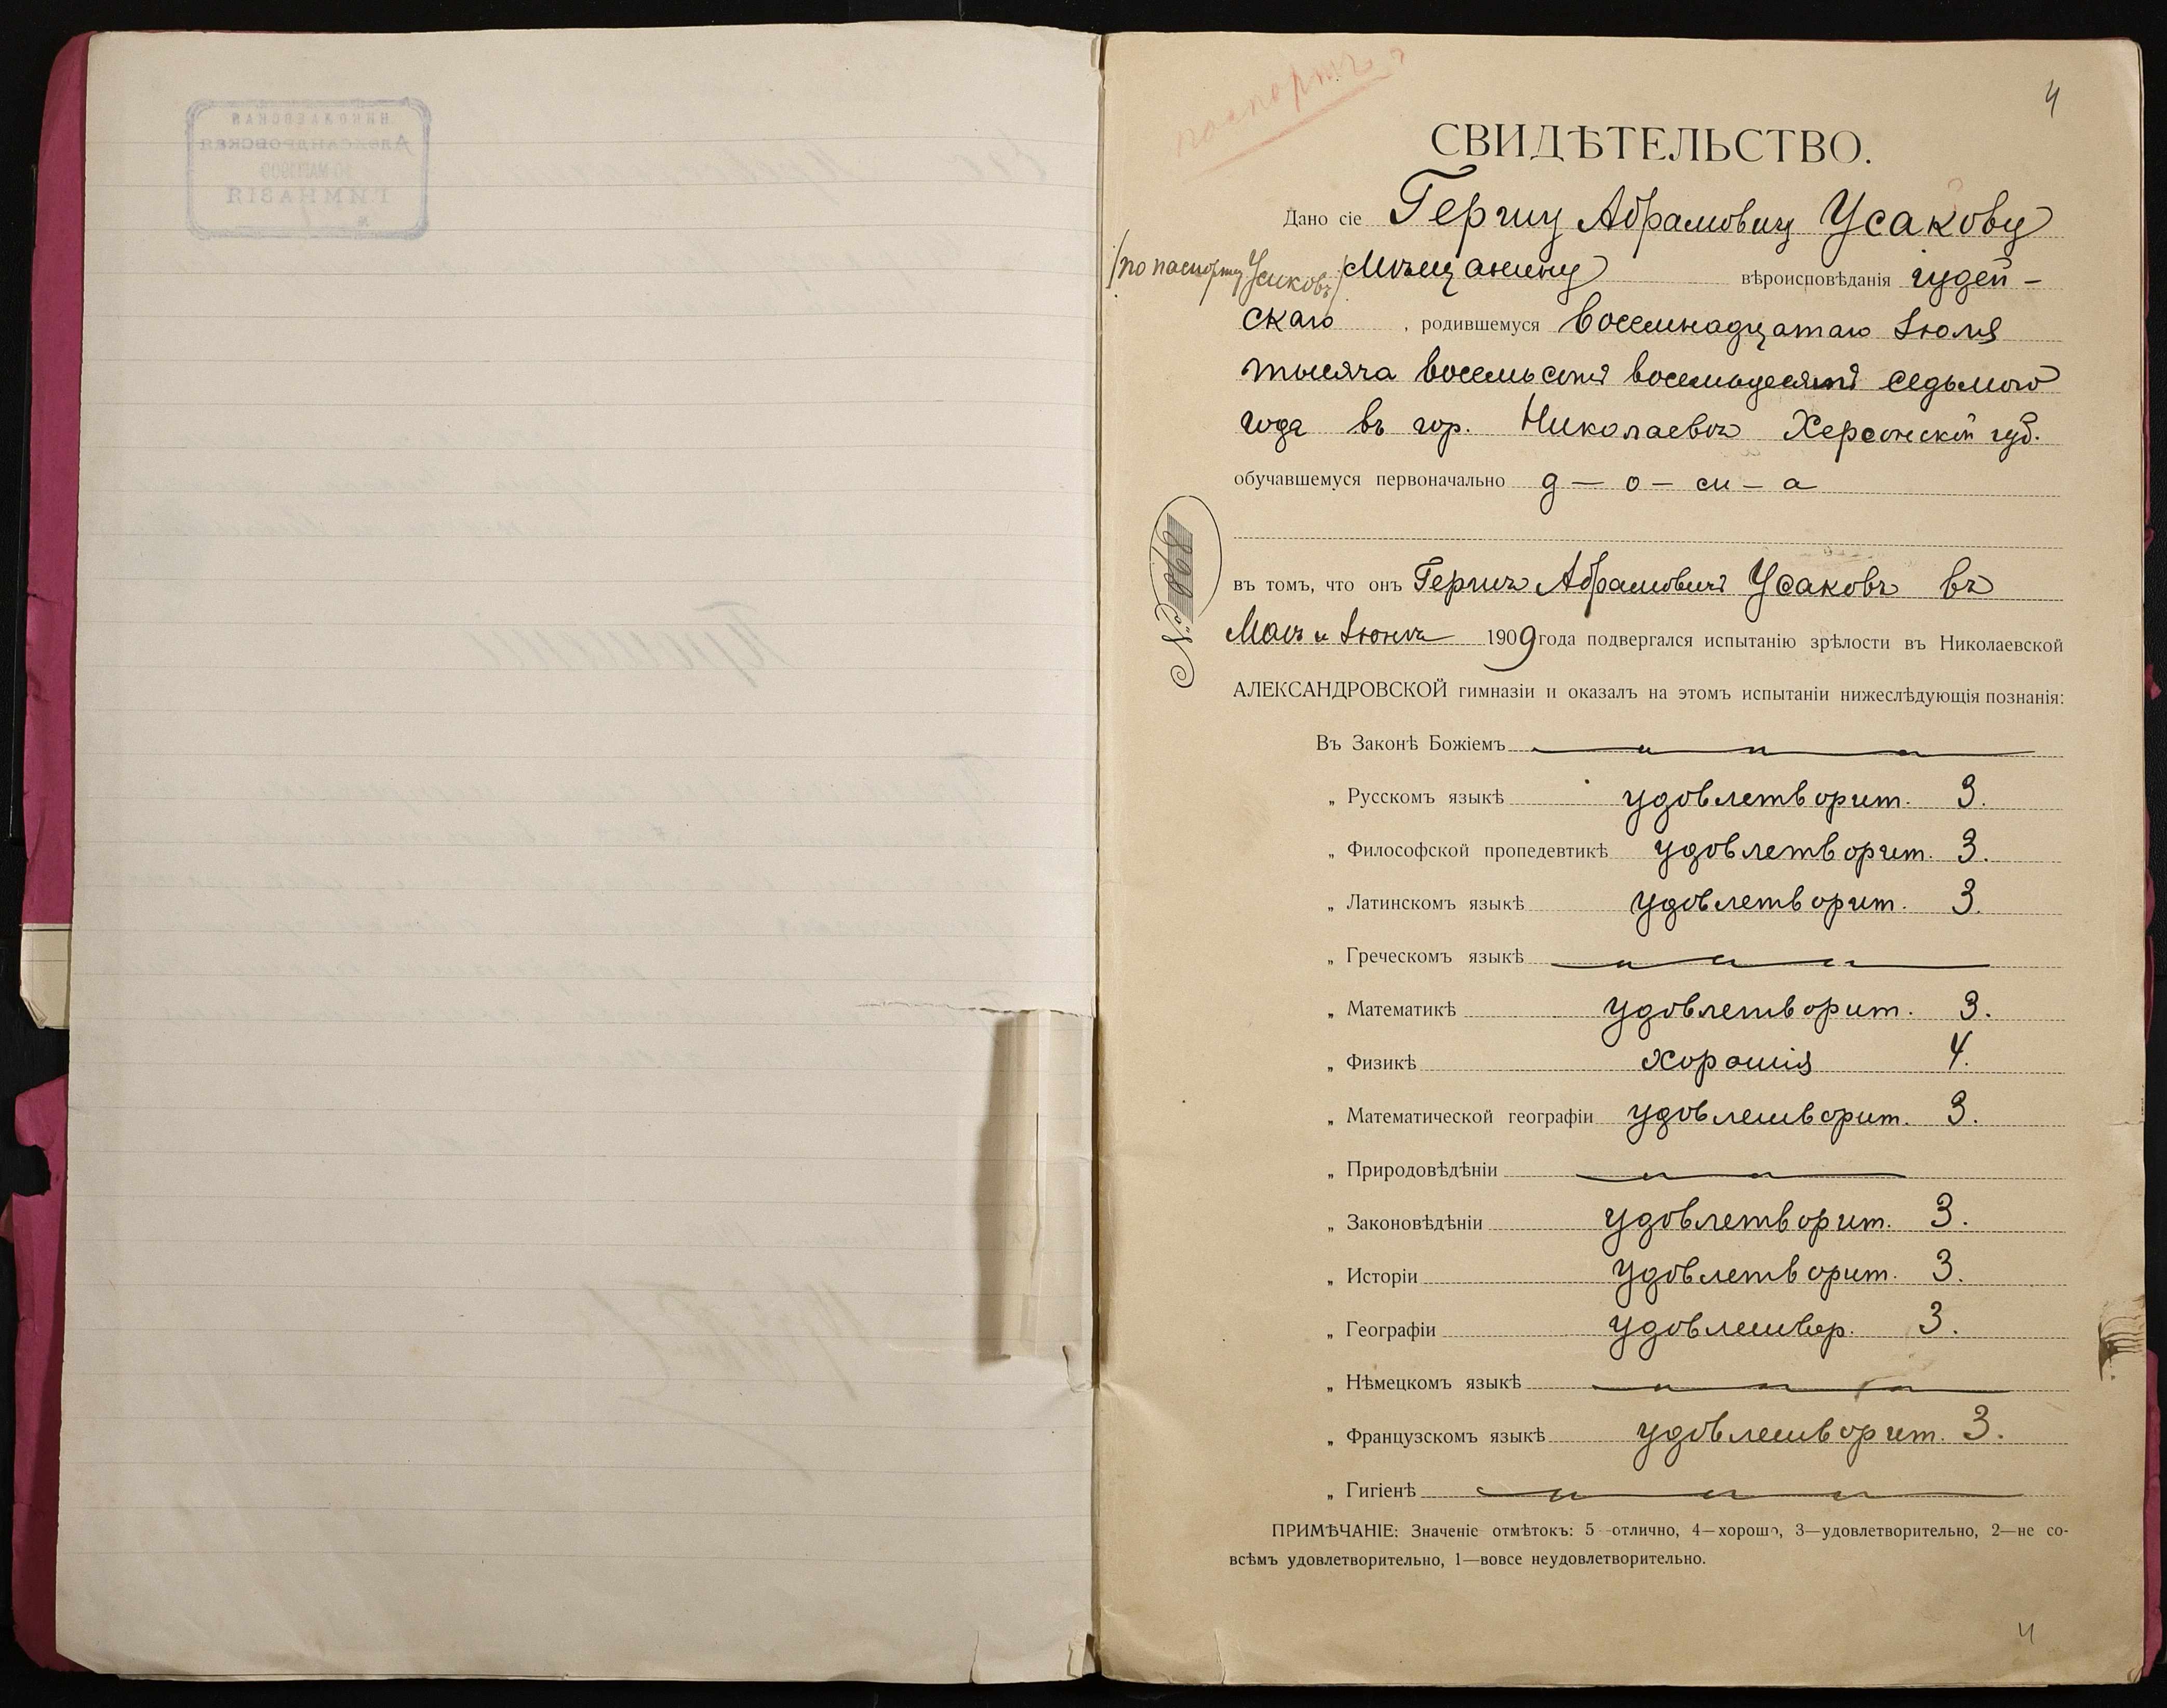 паспортъ
4
СВИДѢТЕЛЬСТВО.
Дано сіе Гершу Абрамовичу Усакову
/по паспорту Усиковъ/ Мѣщанину вѣроисповѣданія іудей-
скаго , родившемуся восемнадцатаго Іюля
тысяча восемьсотъ восемьдесятъ седьмого
года въ гор. Николаевѣ Херсонской губ.
обучавшемуся первоначально д – о – м – а
№ 8908
въ томъ, что онъ Гершъ Абрамовичъ Усаковъ въ
Маѣ и Іюнѣ 1909 года подвергался испытанію зрѣлости въ Николаевской
АЛЕКСАНДРОВСКОЙ гимназіи и оказалъ на этомъ испытаніи нижеслѣдующія познанія:
Въ Законѣ Божіемъ
„ Русскомъ языкѣ удовлетворит. 3.
„ Философской пропедевтикѣ удовлетворит. 3.
„ Латинскомъ языкѣ удовлетворит. 3.
„ Греческомъ языкѣ
„ Математикѣ удовлетворит. 3.
„ Физикѣ хорошія 4.
„ Математической географіи удовлетворит. 3.
„ Природовѣдѣніи
„ Законовѣдѣніи удовлетворит. 3.
„ Исторіи удовлетворит. 3.
„ Географіи удовлетвор. 3.
„ Нѣмецкомъ языкѣ
„ Французскомъ языкѣ удовлетворит. 3.
„ Гигіенѣ
ПРИМѢЧАНІЕ: Значеніе отмѣтокъ: 5—отлично, 4—хорошо, 3—удовлетворительно, 2—не со-
всѣмъ удовлетворительно, 1—вовсе неудовлетворительно.
4